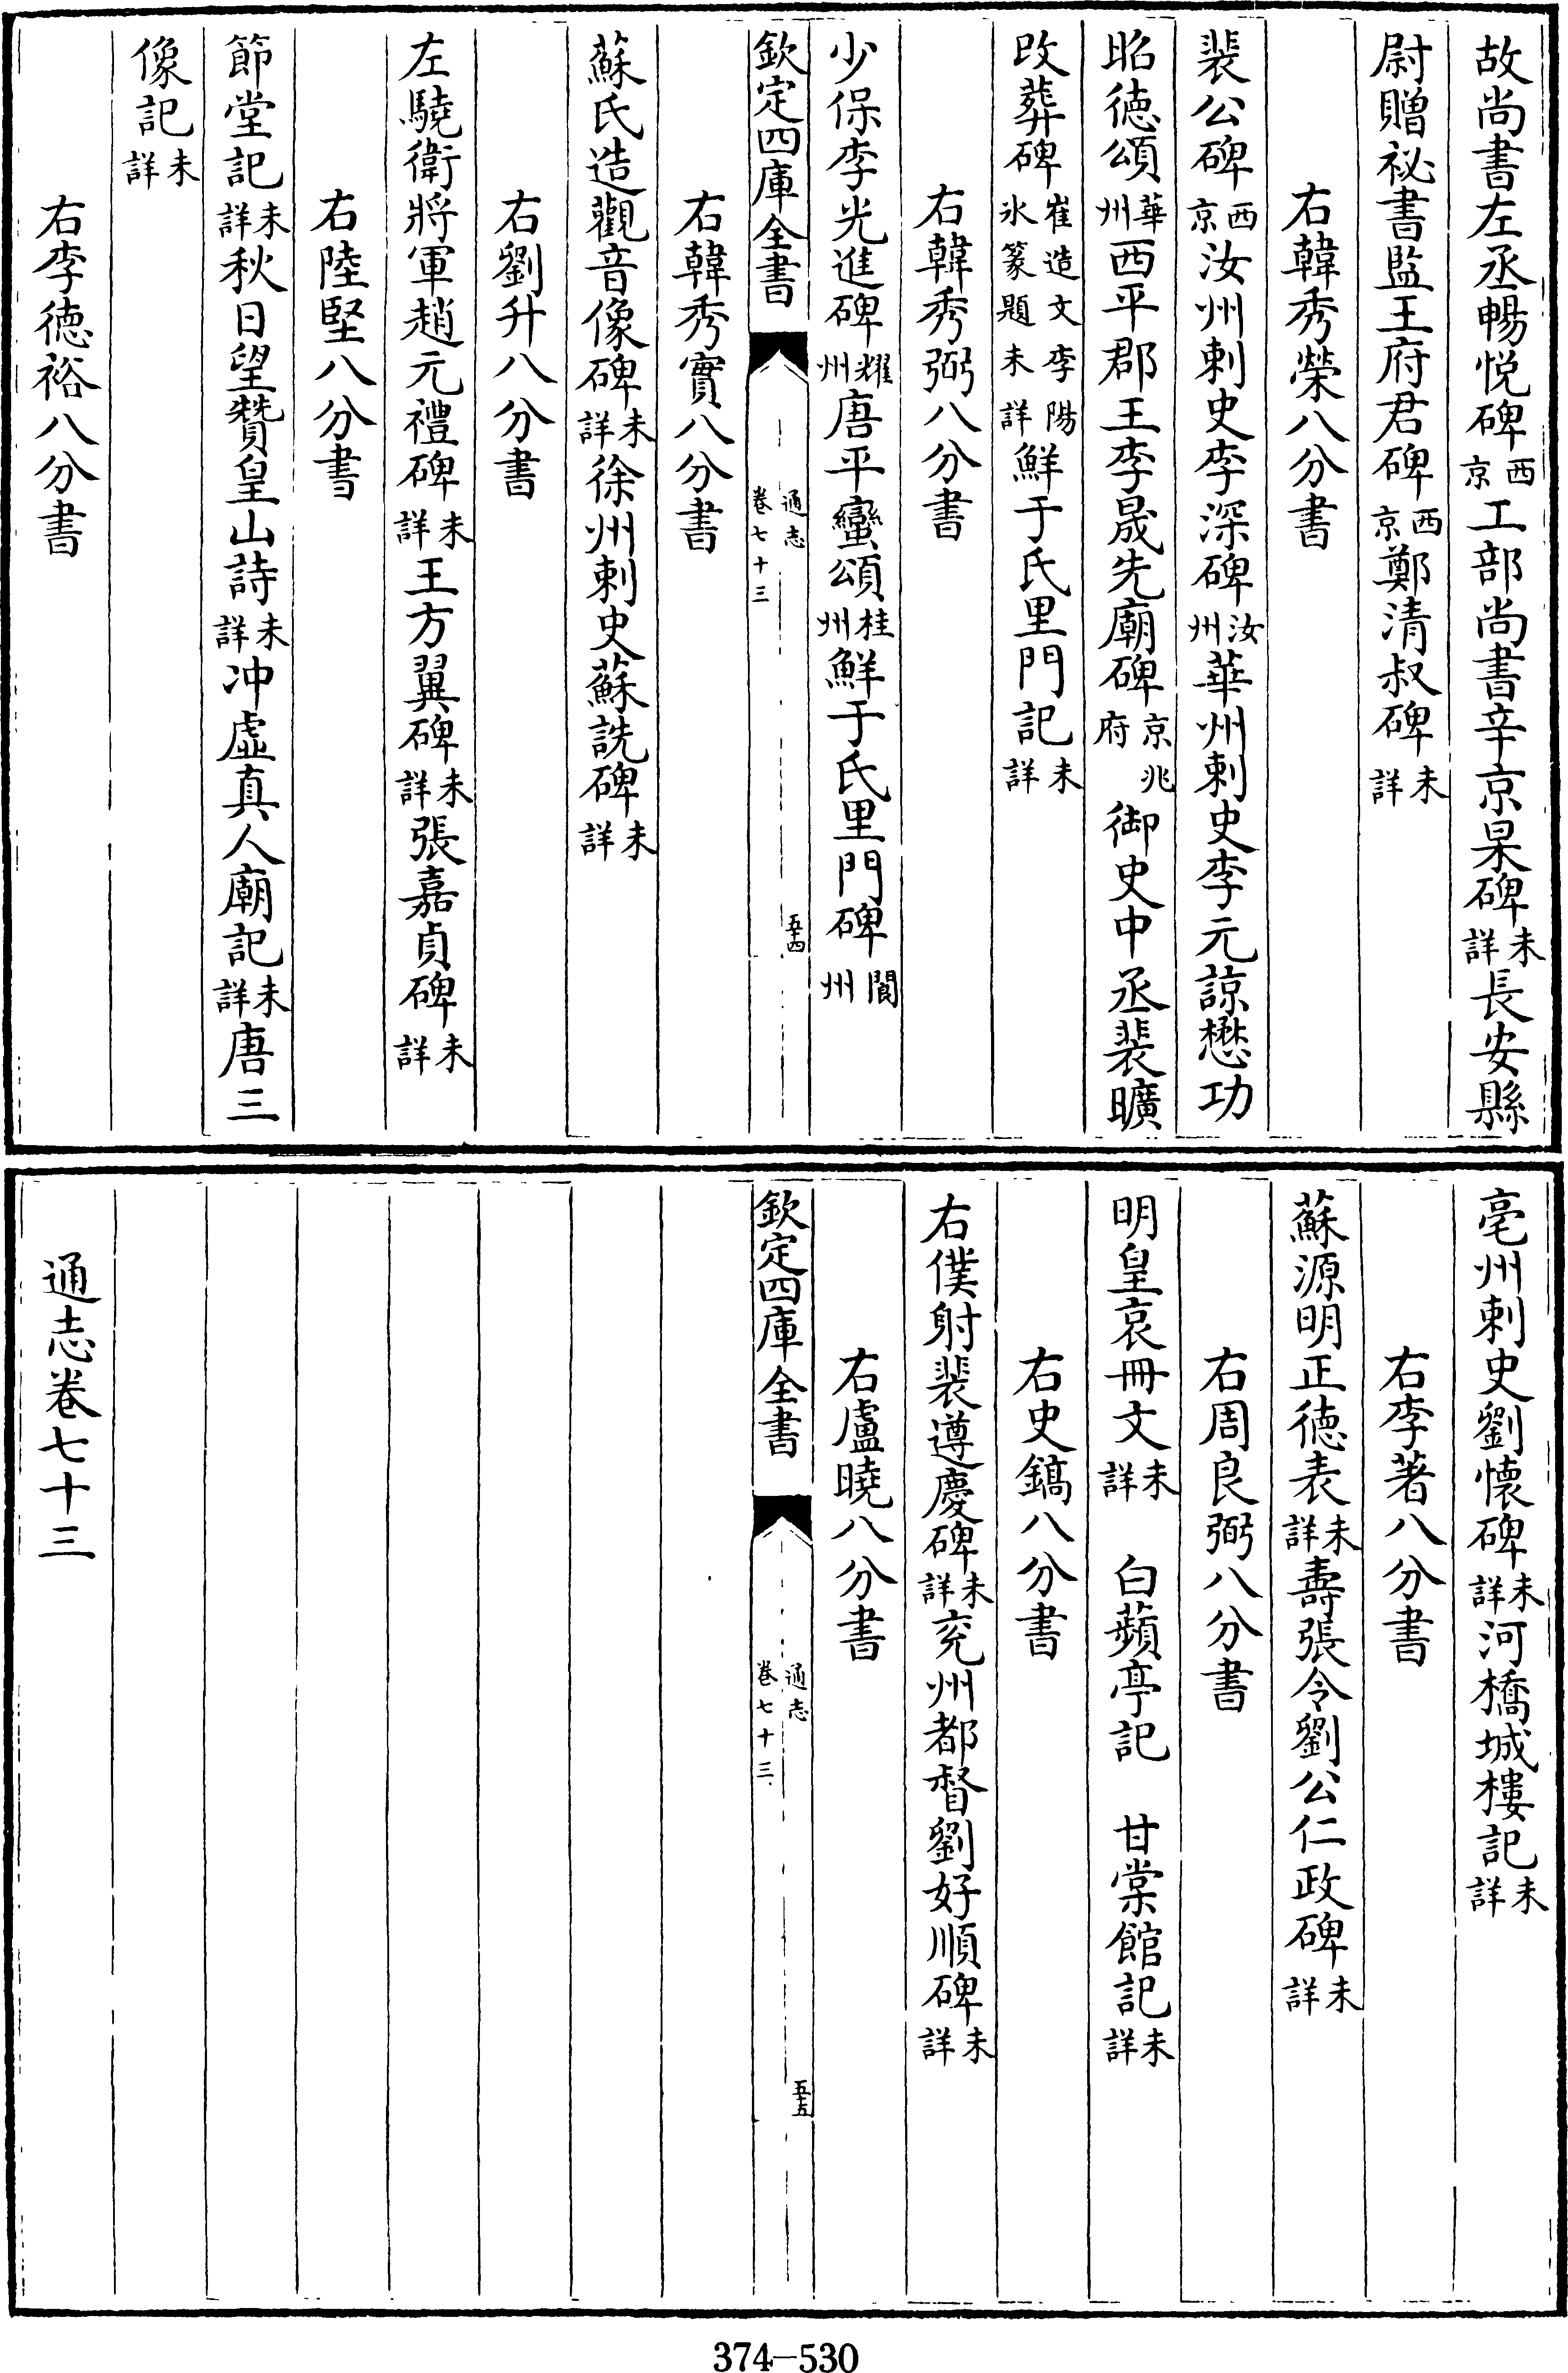 故尚書左丞暢悅碑西京工部尚書辛京杲碑未詳長安縣
尉贈祕書監王府君碑西京鄭清叔碑未詳
右韓秀榮八分書
裴公碑西京汝州刺史李深碑汝州華州刺史李元諒懋功
昭德頌華州西平郡王李晟先廟碑京兆府御史中丞裴曠
改葬碑崔造文李陽氷篆題未詳鮮于氏里門記未詳
右韓秀弼八分書
少保李光進碑耀州唐平蠻頌桂州鮮于氏里門碑閬州
欽定四庫全書
通志
卷七十三
五十四
右韓秀實八分書
蘇氏造觀音像碑未詳徐州刺史蘇詵碑未詳
右劉升八分書
左驍衛將軍趙元禮碑未詳王方翼碑未詳張嘉貞碑未詳
右陸堅八分書
節堂記未詳秋日望贊皇山詩未詳冲虛真人廟記未詳唐三
像記未詳
右李德裕八分書
亳州刺史劉懷碑未詳河橋城樓記未詳
右李著八分書
蘇源明正德表未詳壽張令劉公仁政碑未詳
右周良弼八分書
明皇哀冊文未詳 白蘋亭記 甘棠館記未詳
右史鎬八分書
右僕射裴遵慶碑未詳兗州都督劉好順碑未詳
右盧曉八分書
欽定四庫全書
通志
卷七十三
五十五
通志卷七十三
374-530